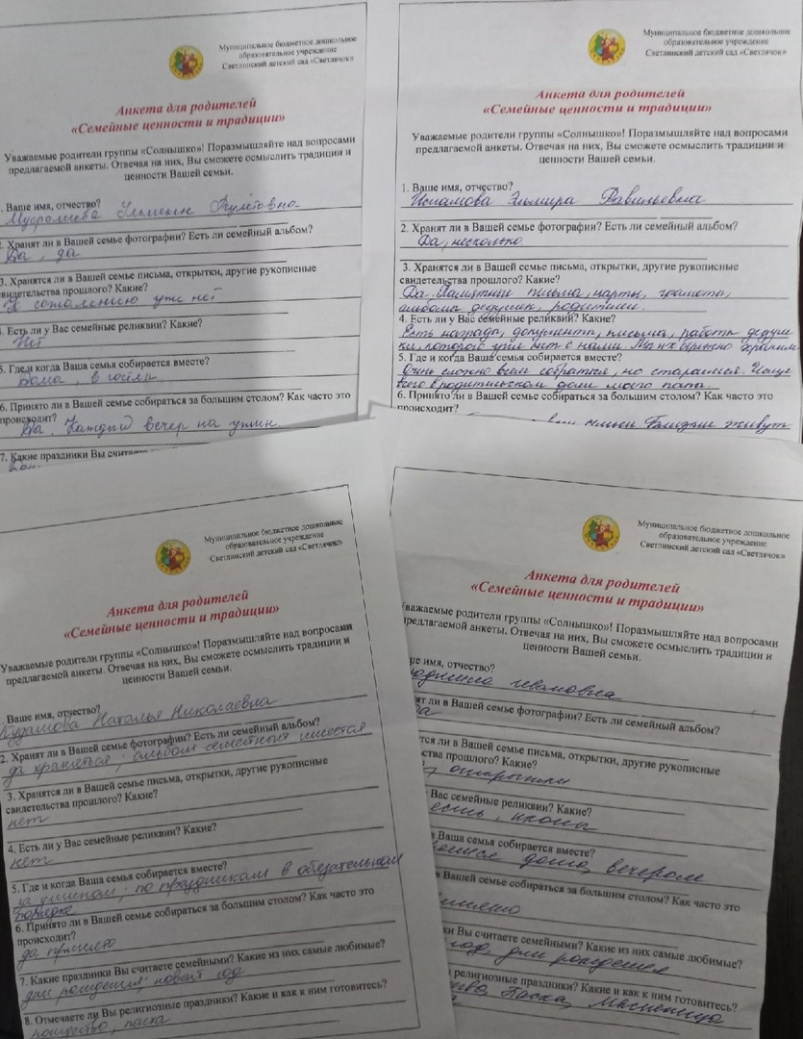 Муниципальное бюджетное дошкольное
образовательное учреждение
Светлинский детский сад «Светлячок»
Анкета для родителей
«Семейные ценности и традиции»
Уважаемые родители группы «Солнышко»! Поразмышляйте над вопросами
предлагаемой анкеты. Отвечая на них, Вы сможете осмыслить традиции и
ценности Вашей семьи.
. Ваше имя, отчество?
2. Хранят ли в Вашей семье фотографии? Есть ли семейный альбом?
Да, да
3. Хранятся ли в Вашей семье письма, открытки, другие рукописные
свидетельства прошлого? Какие?
К сожалению уже нет
4. Есть ли у Вас семейные реликвии? Какие?
Нет
5. Где и когда Ваша семья собирается вместе?
Дома, в гостях
6. Принято ли в Вашей семье собираться за большим столом? Как часто это
происходит?
Да. Каждый вечер на ужин.
7. Какие праздники Вы считаете
Муниципальное бюджетное дошкольное
образовательное учреждение
Светлинский детский сад «Светлячок»
Анкета для родителей
«Семейные ценности и традиции»
Уважаемые родители группы «Солнышко»! Поразмышляйте над вопросами
предлагаемой анкеты. Отвечая на них, Вы сможете осмыслить традиции и
ценности Вашей семьи.
1. Ваше имя, отчество?
Исламова Эльмира Равильевна
2. Хранят ли в Вашей семье фотографии? Есть ли семейный альбом?
Да, несколько
3. Хранятся ли в Вашей семье письма, открытки, другие рукописные
свидетельства прошлого? Какие?
Да. Памятны письма, карты, грамоты,
альбомы дедушек, родителей.
4. Есть ли у Вас семейные реликвии? Какие?
Есть награда, документы, письма, работы дедуш
ки, которой уже нет с нами. Мы их бережно храним
5. Где и когда Ваша семья собирается вместе?
Очень сложно всем собраться, но стараемся. Чаще
всего в родительском доме моего папы.
6. Принято ли в Вашей семье собираться за большим столом? Как часто это
происходит?
живут
Муниципальное бюджетное дошкольное
образовательное учреждение
Светлинский детский сад «Светлячок»
Анкета для родителей
«Семейные ценности и традиции»
Уважаемые родители группы «Солнышко»! Поразмышляйте над вопросами
предлагаемой анкеты. Отвечая на них, Вы сможете осмыслить традиции и
ценности Вашей семьи.
. Ваше имя, отчество?
Наталья Николаевна
2. Хранят ли в Вашей семье фотографии? Есть ли семейный альбом?
да храняться; альбом семейный имеется
3. Хранятся ли в Вашей семье письма, открытки, другие рукописные
свидетельства прошлого? Какие?
нет
4. Есть ли у Вас семейные реликвии? Какие?
нет
5. Где и когда Ваша семья собирается вместе?
за ужином; по праздникам в обязательном
порядке
6. Принято ли в Вашей семье собираться за большим столом? Как часто это
происходит?
да принято
7. Какие праздники Вы считаете семейными? Какие из них самые любимые?
дни рождения; новый год
8. Отмечаете ли Вы религиозные праздники? Какие и как к ним готовитесь?
рождество, пасха
Муниципальное бюджетное дошкольное
образовательное учреждение
Светлинский детский сад «Светлячок»
Анкета для родителей
«Семейные ценности и традиции»
важаемые родители группы «Солнышко»! Поразмышляйте над вопросами
предлагаемой анкеты. Отвечая на них, Вы сможете осмыслить традиции и
ценности Вашей семьи.
ше имя, отчество?
ивановна
ят ли в Вашей семье фотографии? Есть ли семейный альбом?
тся ли в Вашей семье письма, открытки, другие рукописные
ства прошлого? Какие?
открытки
Вас семейные реликвии? Какие?
есть, иконы
Ваша семья собирается вместе?
дома, вечером
в Вашей семье собираться за большим столом? Как часто это
ки Вы считаете семейными? Какие из них самые любимые?
год, дни рождения
религиозные праздники? Какие и как к ним готовитесь?
Пасха, Масленица